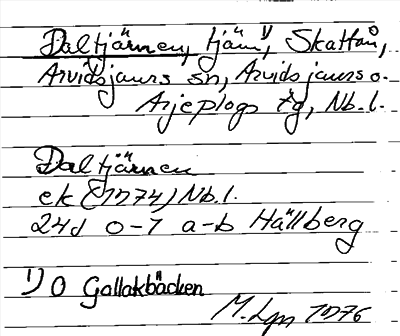 Daltjärnen, tjärn 1), Skatton,
Arvidsjaurs sn, Arvidsjaurs o.
Arjeplogs tg, Nb. l.
Daltjärnen
ek (1974) Nb. l.
24d 0-1 a-b Hällberg
1) O Gallakbäcken
M. Lgn 1976